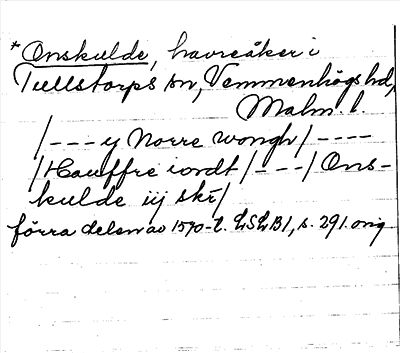 *Onskulde, havreåker i
Tullstorps sn, Vemmenhögs hd,
Malm. l.
/---y Norre wongh/----
/Hauffre iordt/---/Ons-
kulde iij skr/
förra delen av 1570-t. LSLB1, s. 291. orig